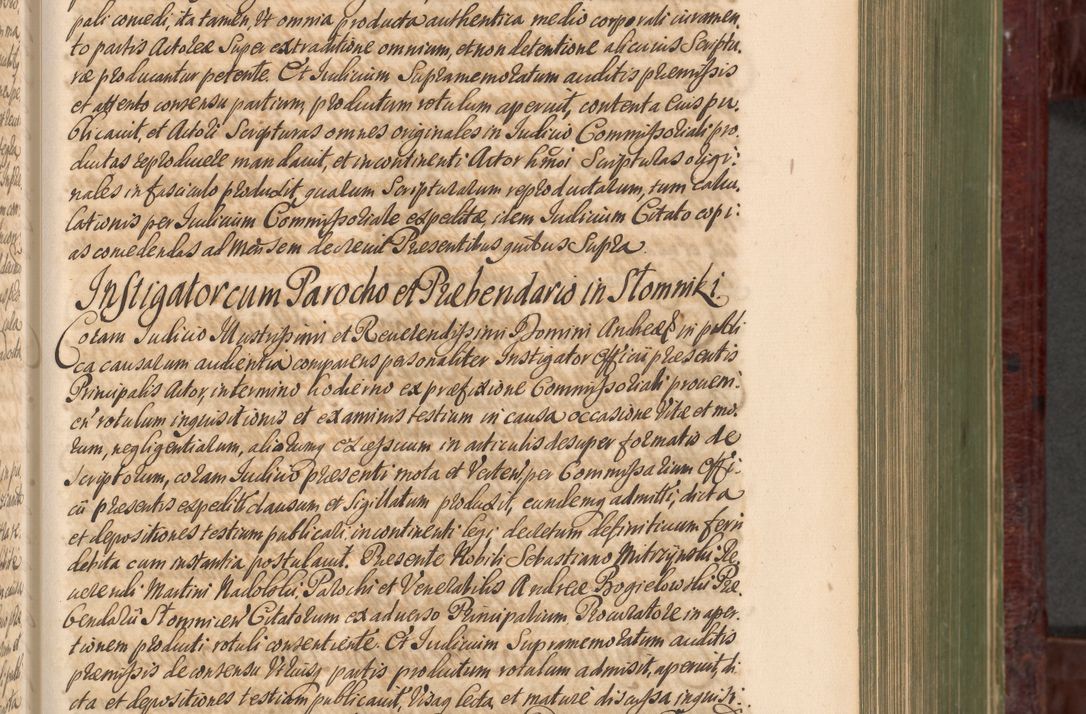 pali comedi, ita tamen Ut omnia producta authentica medio corporali iuramen
to partis Actoreæ Super extraditione omnium, et non detentione alicuius Scriptu,
ræ producantur petente. Et Iudicium Supramemoratum auditis præmissis
et attento consensu partium, productum rotulum aperuit, contenta Eius pu,
blicauit, et Actori Scripturas omnes originales in Iudicio Commissoriali pro,
ductas reproducere mandauit, et incontinenti Actor hmoi Scripturas origi:
nales in fasciculo produxit, quarum Scripturarum reproductarum, tum calcu,
lationis per Iudicium Commissoriale expeditæ idem Iudicium Citato copi:
as concedendas ad Mensem decreuit Præsentibus quibus Supra
Instigator cum Parocho et Præbendario in Słomniki.
Coram Iudicio Illustrissimi et Reuerendissimi Domini Andreæ in publi
ca causarum audientia comparens personaliter Instigator Officii præsentis
Principalis Actor, in termino hodierno ex præfixione Commissoriali proueni:
en' rotulum inquisitionis et examinis testium in causa occasione Vitæ et mo,
rum, negligentiarum, aliorumq excessuum in articulis desuper formatis de
scriptorum, coram Iudicio præsenti mota et Verten', per Commissarium Offi:
cii præsentis expediti clausum et Sigillatum produxit, eundemq admitti, dicta
et depositiones testium publicari, incontinenti legi, decretum definitiuum ferri
debita cum instantia postulauit. Præsente Nobili Sebastiano Mitrzynski Re
uerendi Martini Nadolski, Parochi et Venerabilis Andreæ Bogielowski Præ
bendarii Słomnicen' Citatorum ex aduerso Principalium, Procuratore in aper
tionem producti rotuli consentiente. Et Iudicium Supramemoratum auditis
præmissis de consensu Vtriusq partis productum rotulum admisit, aperuit, di
cta et depositiones testium publicauit, Visaq lecta, et maturè discussa inquisi: